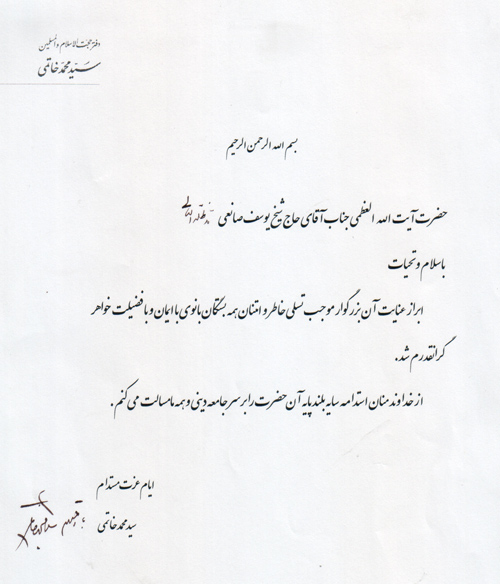 دفتر حجت الاسلام و المسلمین
سید محمد خاتمی
بسم الله الرحمن الرحیم
حضرت آیت الله العظمی جناب آقای حاج شیخ یوسف صانعی مدظله العالی
با سلام و تحیات
ابراز عنایت آن بزرگوار موجب تسلی خاطر و امتنان همه بستگان بانوی با ایمان و با فضیلت خواهر
گرانقدرم شد.
از خداوند منان استدامه سایه بلند پایه آن حضرت را بر سر جامعه دینی و همه ما مسالت می کنم.
ایام عزت مستدام
سید محمد خاتمی